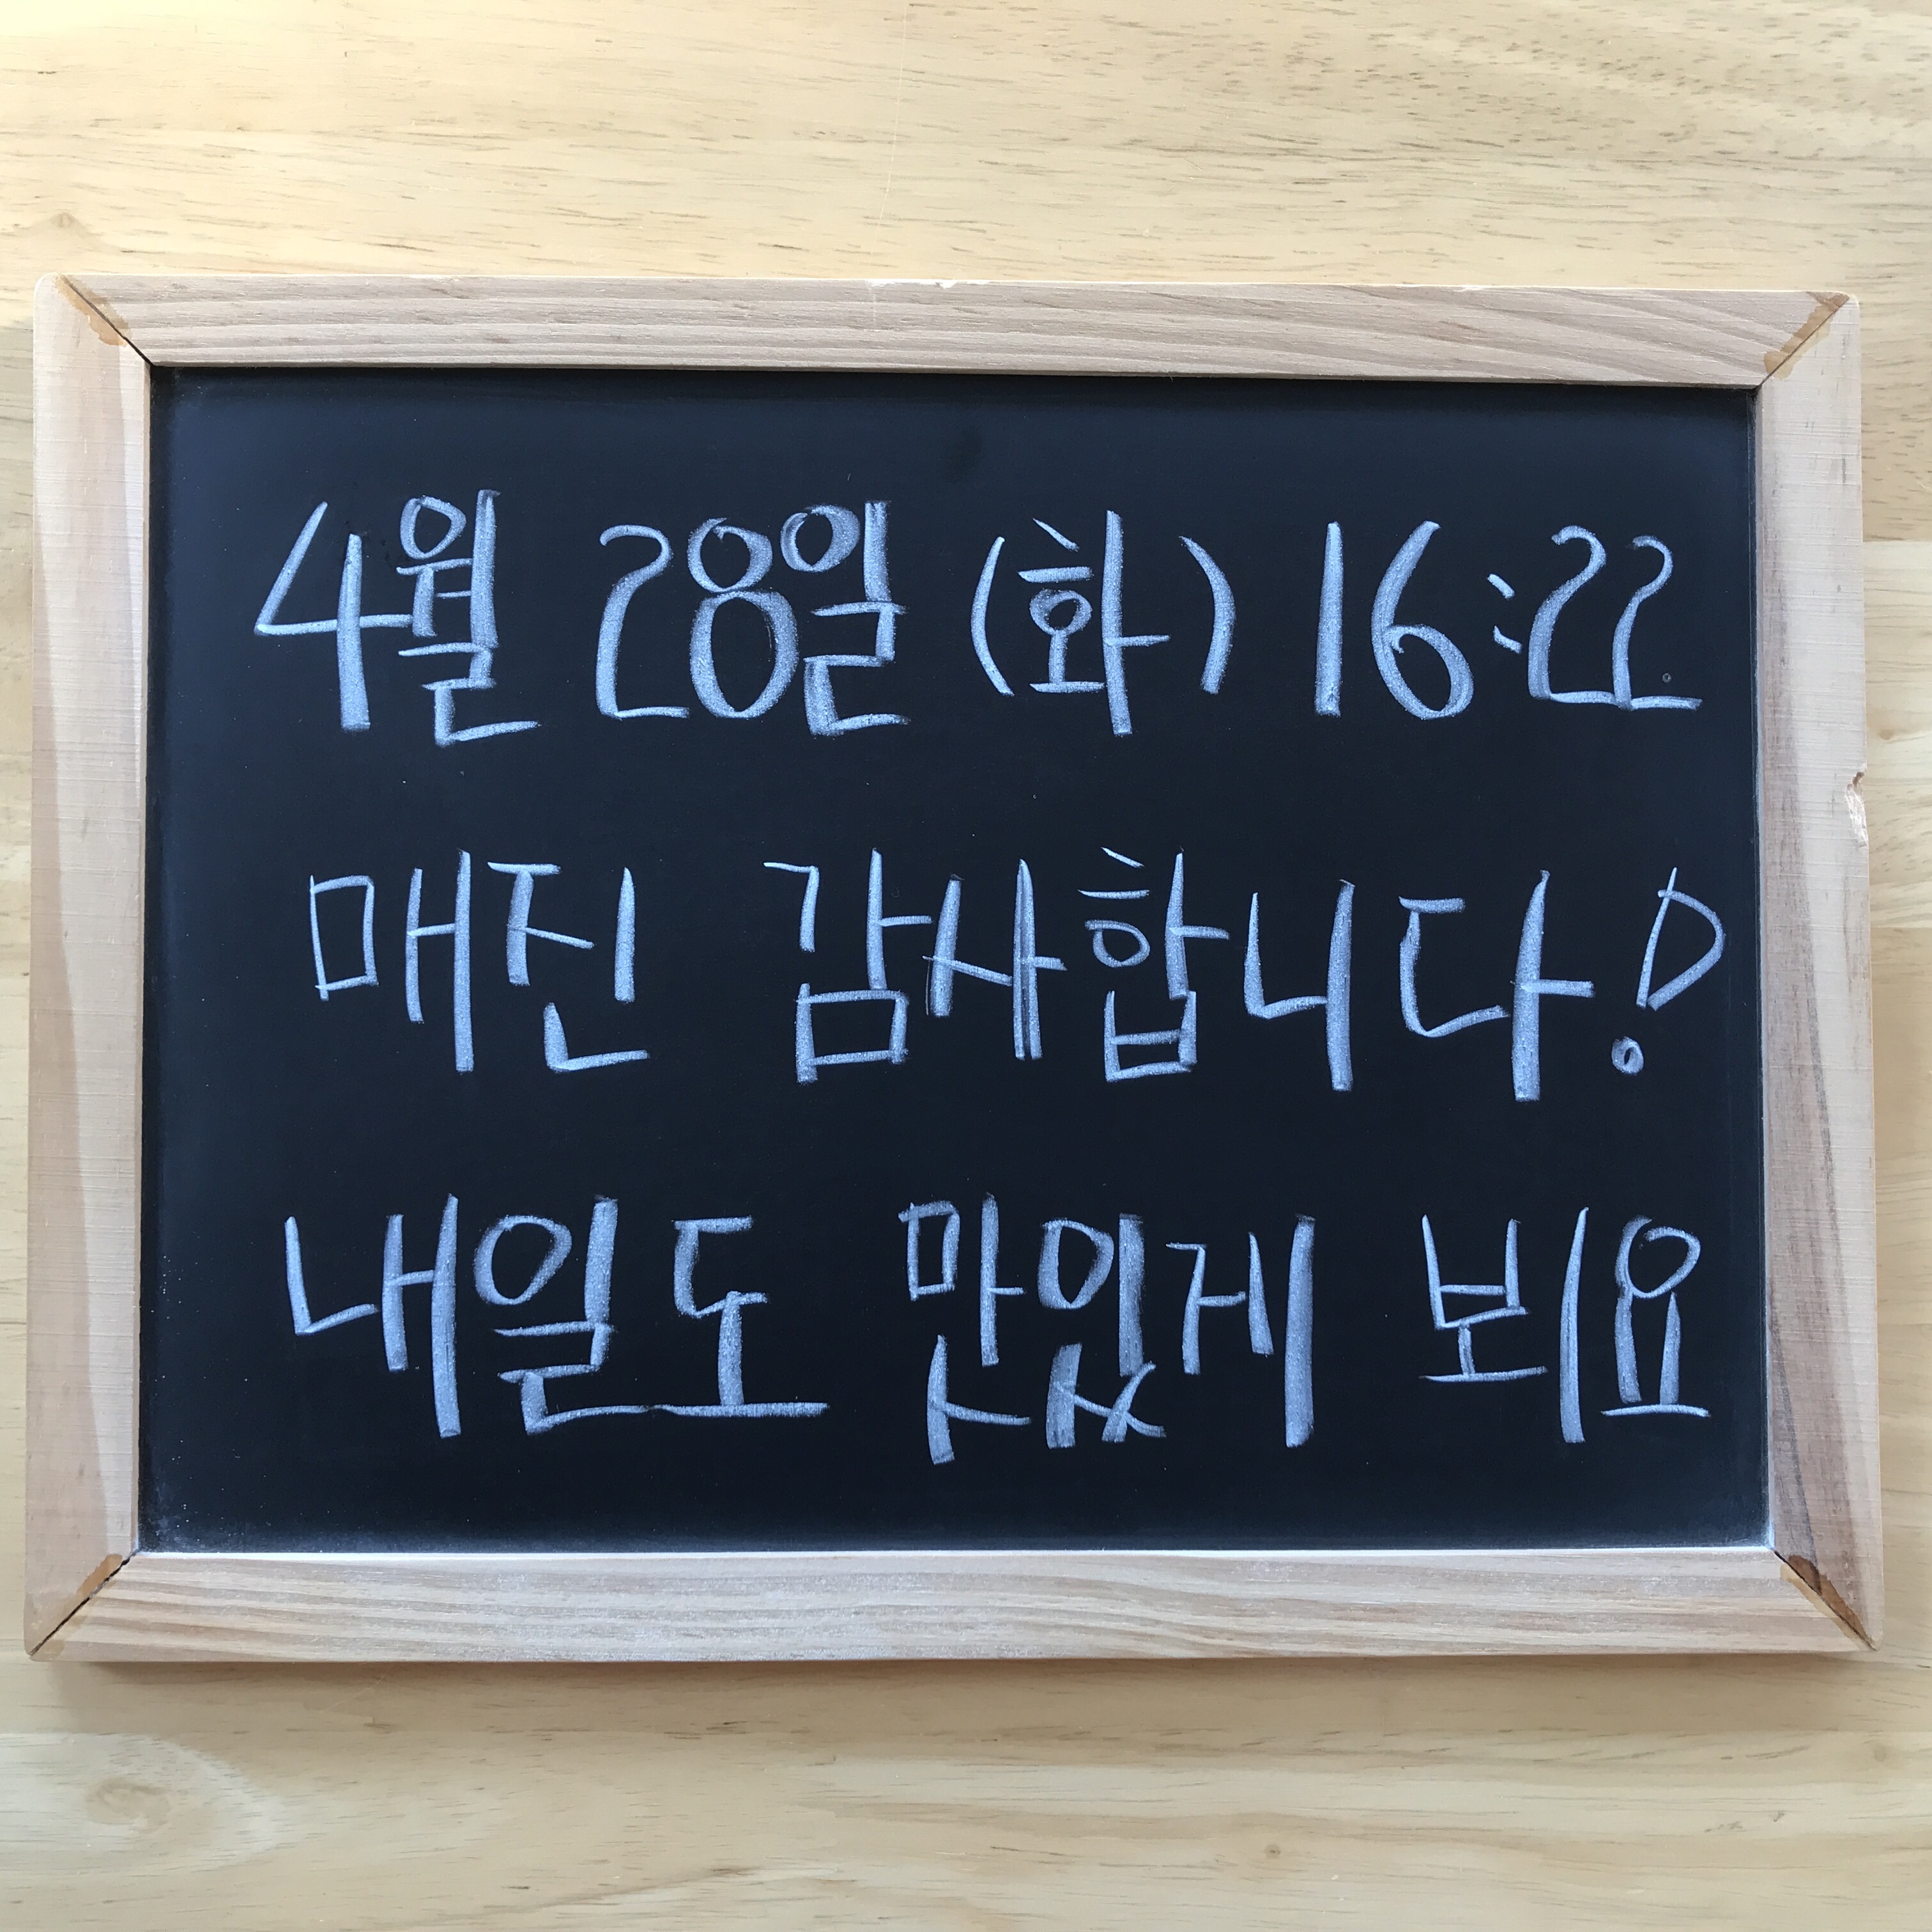 4월 28일 (화) 16:22
매진 감사합니다!
내일도 맛있게 뵈요